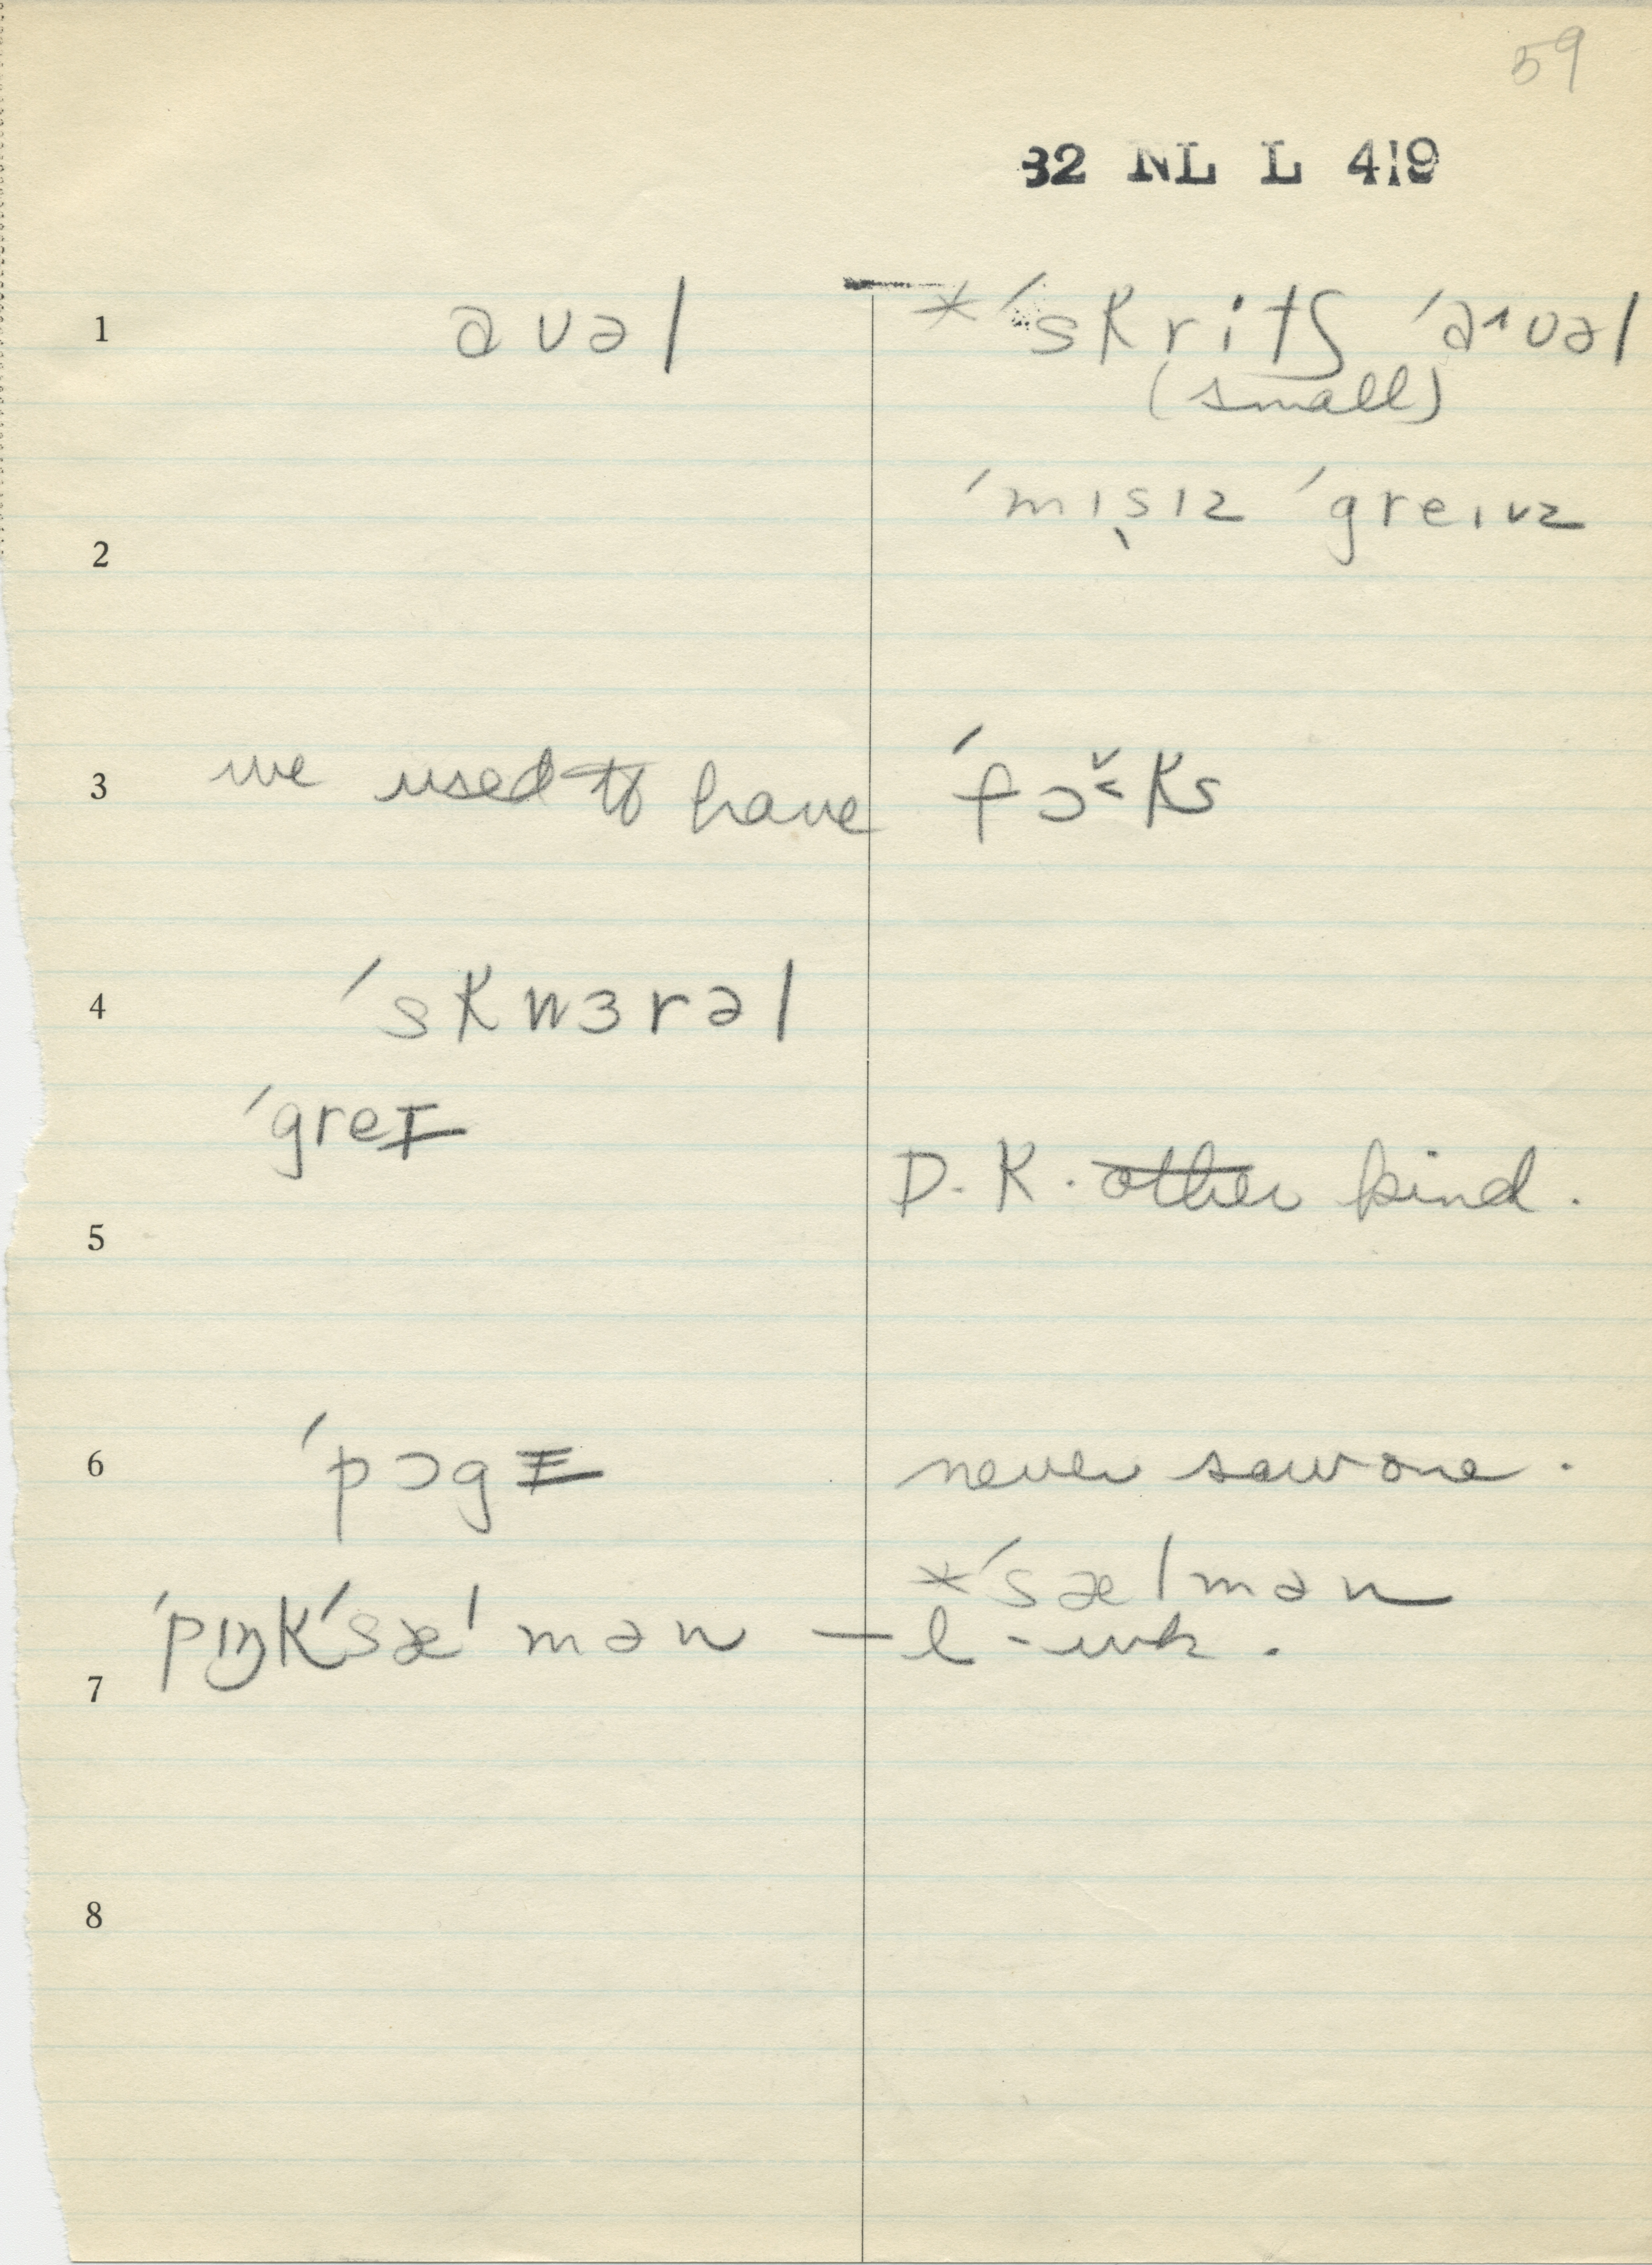 59
32 NL L 419
1 aʊəl *ˈskritʃ ˈaˑʊəl
(small)
ˈmɪs̩ɪz ˈgreɪvz
2
3 we used to have ˈfɔ̌˂ks
4 ˈskwɜrəl
ˈgreɪ
D.K. other kind.
5
6 ˈpɔgɪ never saw one.
*ˈsælmən
ˈpɪŋkˈsæˈmən — l - unk.
7
8